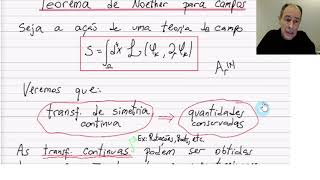 Teorema de Noether para campos
Seja a ação de uma teoria de campo
S = ∫_Ω d⁴x ℒ(φ_k, ∂φ_k)
Veremos que:
transf. de simetria contínua → quantidades conservadas
Ex: Rotações, etc.
As transf. contínuas podem ser obtidas